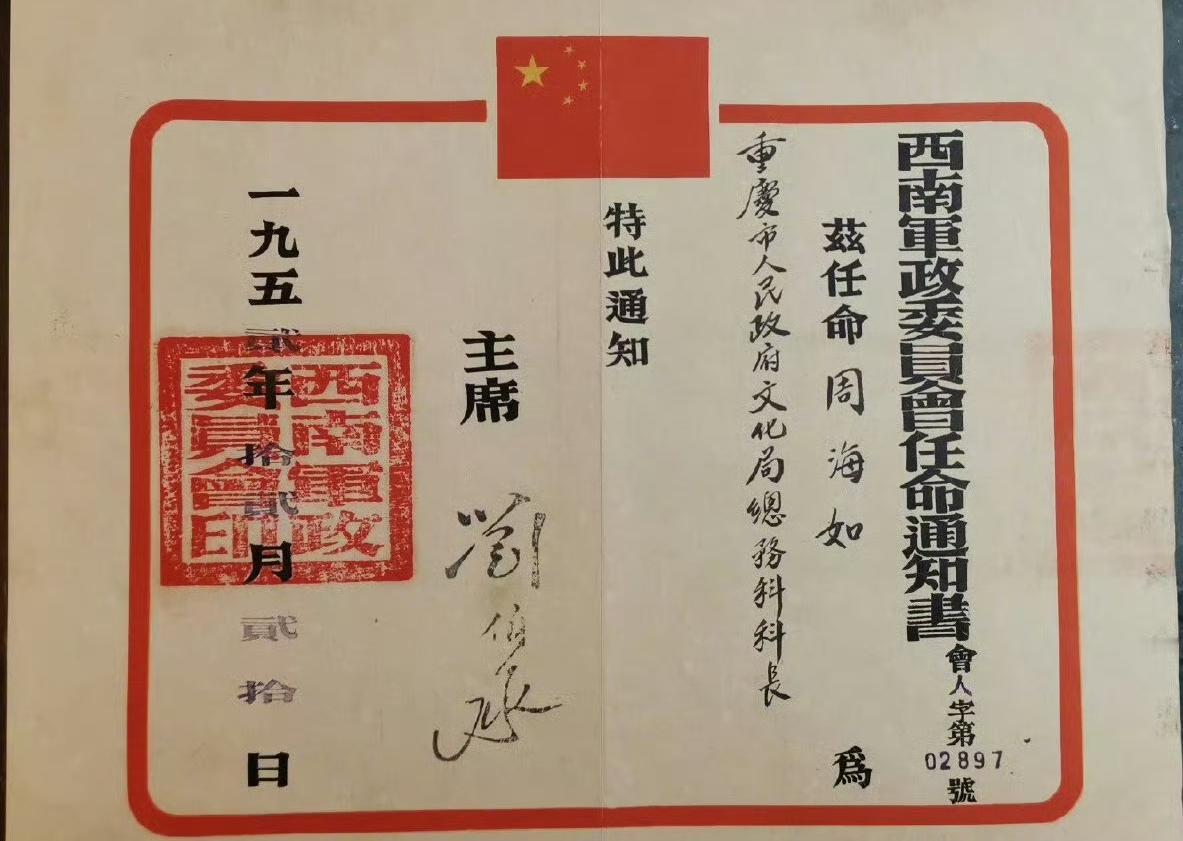 西南軍政委員會任命通知書
會人字第
02897
號
茲任命周海如為
重慶市人民政府文化局總務科科長
特此通知
主席
劉伯承
一九五貳年拾貳月貳拾日
西南軍政委員會印